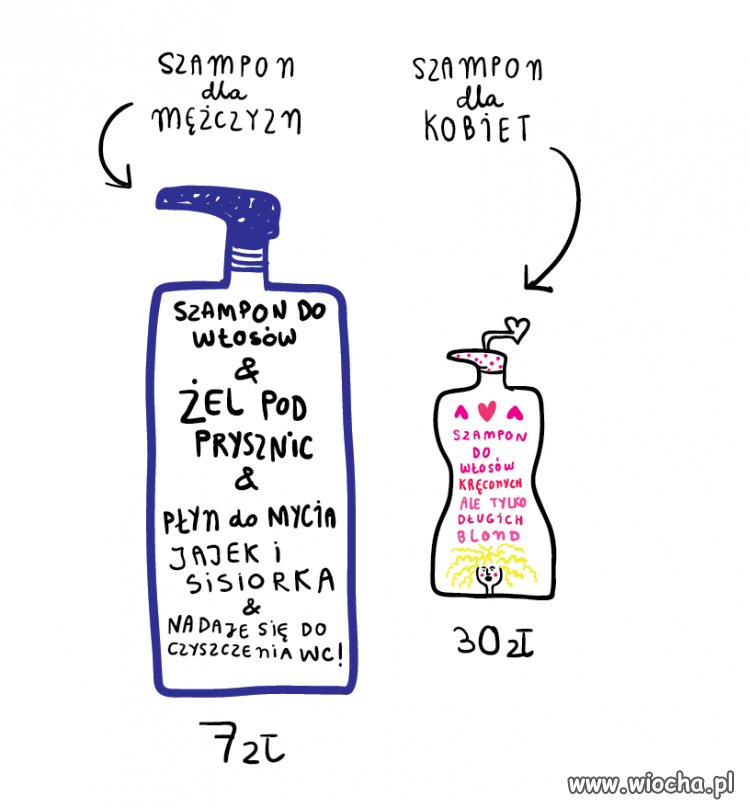 SZAMPON
dla
MĘŻCZYZN
SZAMPON
dla
KOBIET
SZAMPON DO
WŁOSÓW
&
ŻEL POD
PRYSZNIC
&
PŁYN do MYCIA
JAJEK i
SISIORKA
&
NADAJE SIĘ DO
CZYSZCZENIA WC!
7zł
SZAMPON
DO
WŁOSÓW
KRĘCONYCH
ALE TYLKO
DŁUGICH
BLOND
30zł
www.wiocha.pl